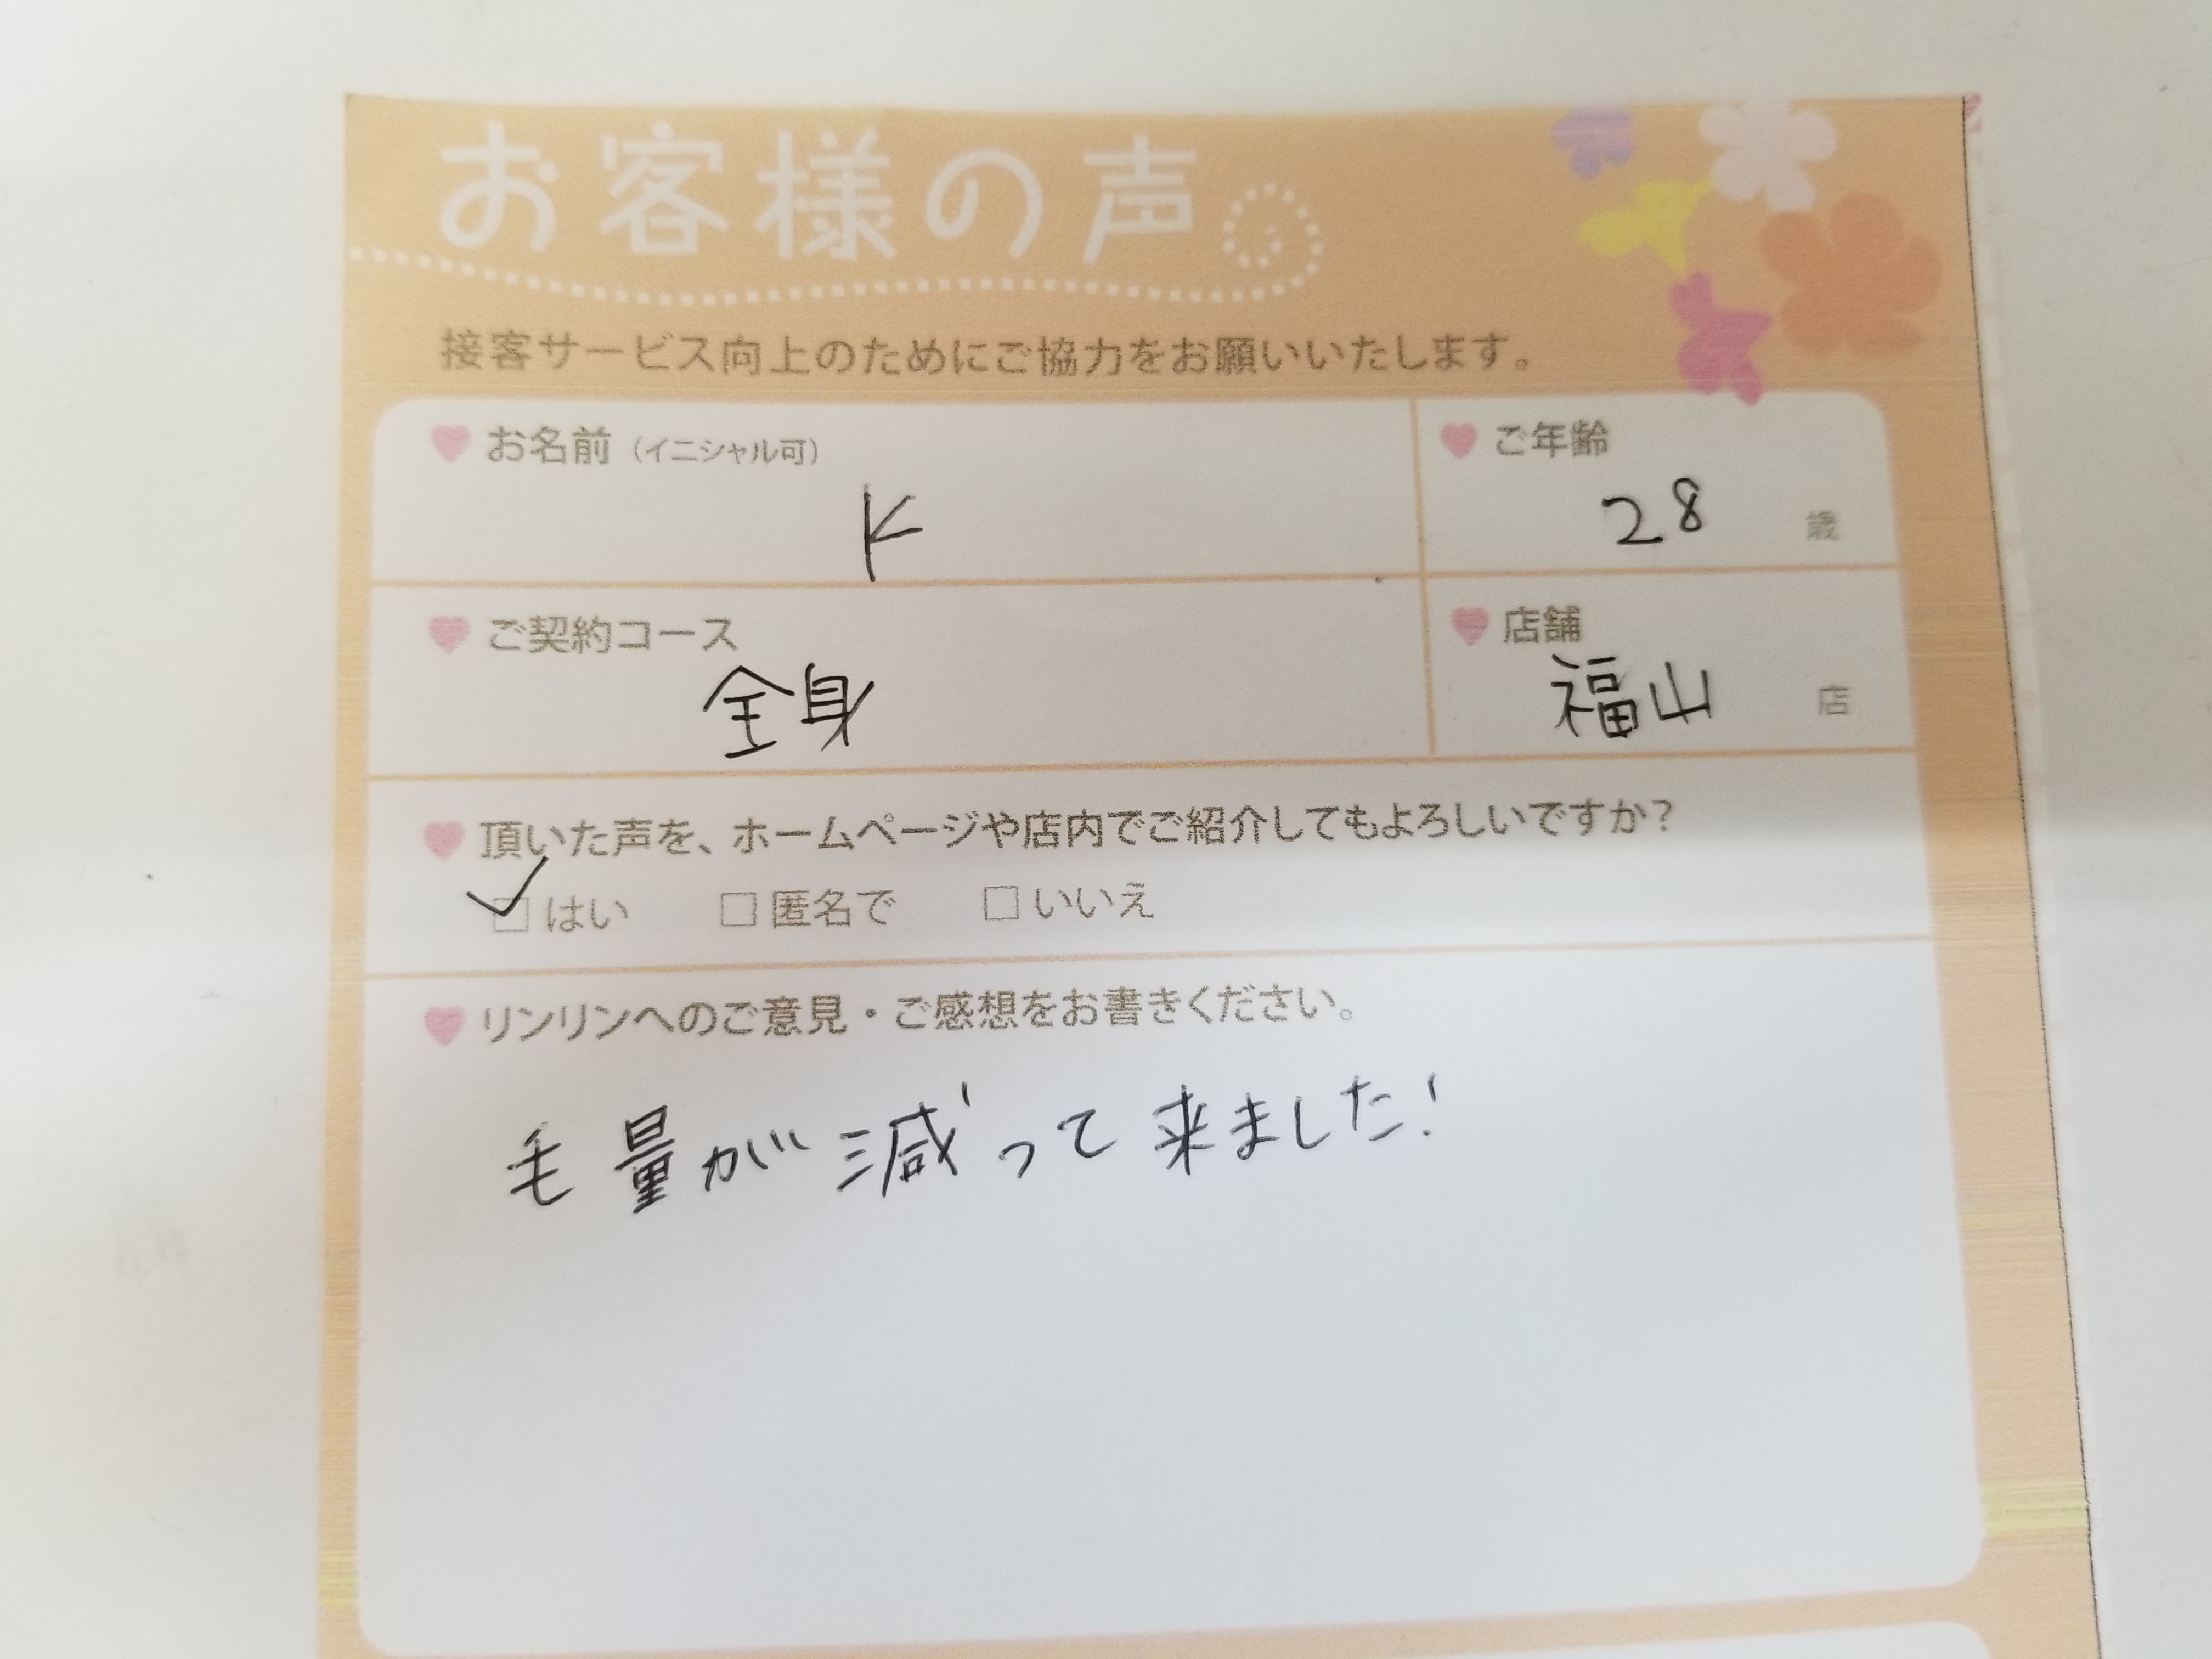 お客様の声。
接客サービス向上のためにご協力をお願いいたします。
お名前（イニシャル可）
K
ご年齢
28 歳
ご契約コース
全身
店舗
福山 店
頂いた声を、ホームページや店内でご紹介してもよろしいですか？
はい 匿名で いいえ
リンリンへのご意見・ご感想をお書きください。
毛量が減って来ました!